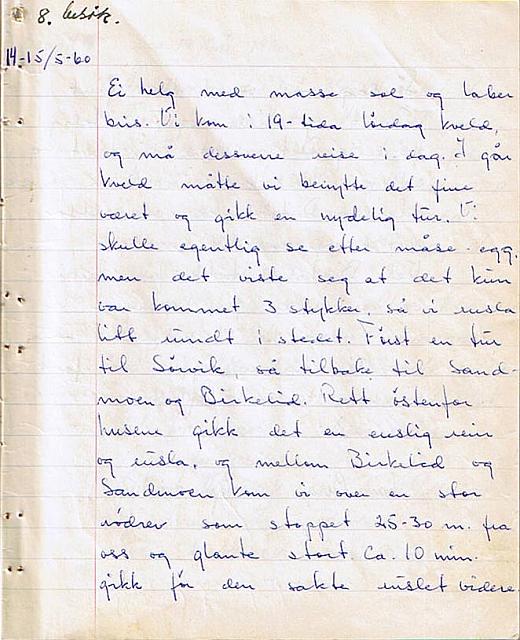 8. besøk.
14-15/5-60
Ei helg med masse sol og laber
bris. Vi kom i 19-tida lørdag kveld,
og må dessverre reise i dag. I går
kveld måtte vi benytte det fine
været og gikk en nydelig tur. Vi
skulle egentlig se etter måse-egg,
men det viste seg at det kun
var kommet 3 stykker, så vi rusla
litt rundt i stedet. Først en tur
til Sørvik, så tilbake til Sand-
moen og Birkelid. Rett østenfor
husene gikk det en enslig rein
og rusla, og mellom Birkelid og
Sandmoen kom vi over en stor
rødrev som stoppet 25-30 m. fra
oss og glante stort. Ca. 10 min.
gikk før den sakte ruslet videre.